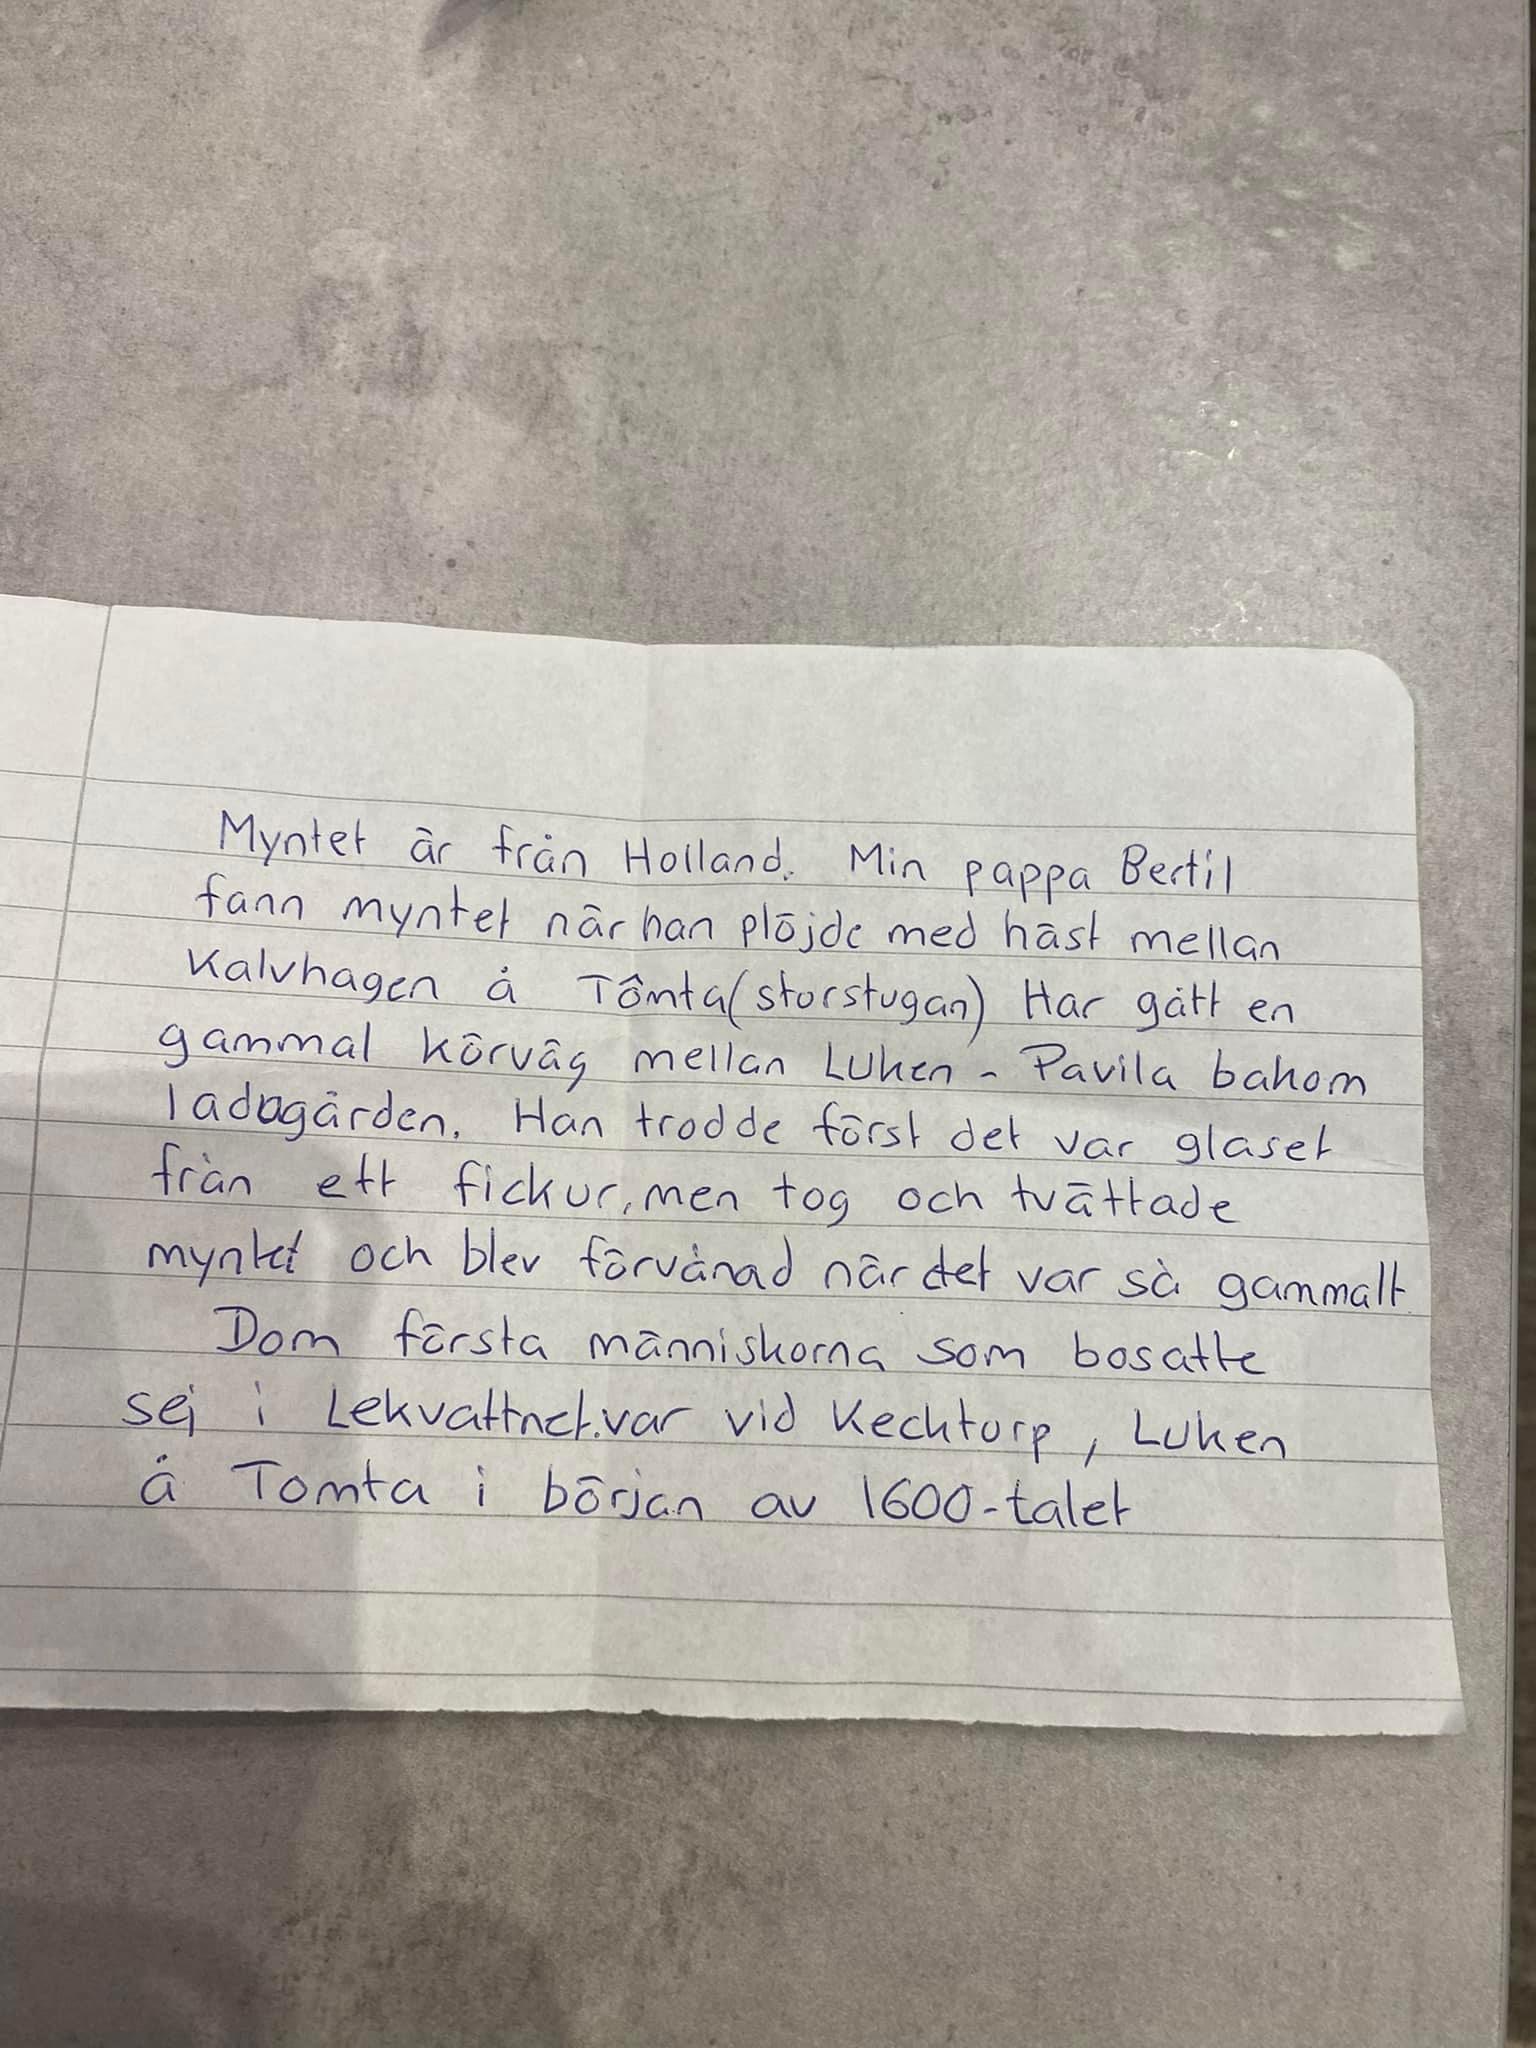 Myntet är från Holland. Min pappa Bertil
fann myntet när han plöjde med häst mellan
Kalvhagen å Tômta (storstugan) Har gått en
gammal körväg mellan Luken - Pavila bakom
ladugården. Han trodde först det var glaset
från ett fickur, men tog och tvättade
myntet och blev förvånad när det var så gammalt.
Dom första människorna som bosatte
sej i Lekvattnet.var vid Kecktorp, Luken
å Tomta i början av 1600-talet